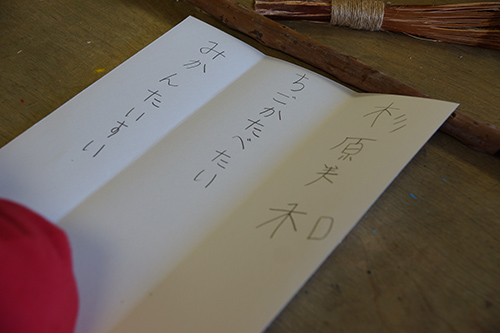 杉原美和
ちごかたべたい
みかんたいすい